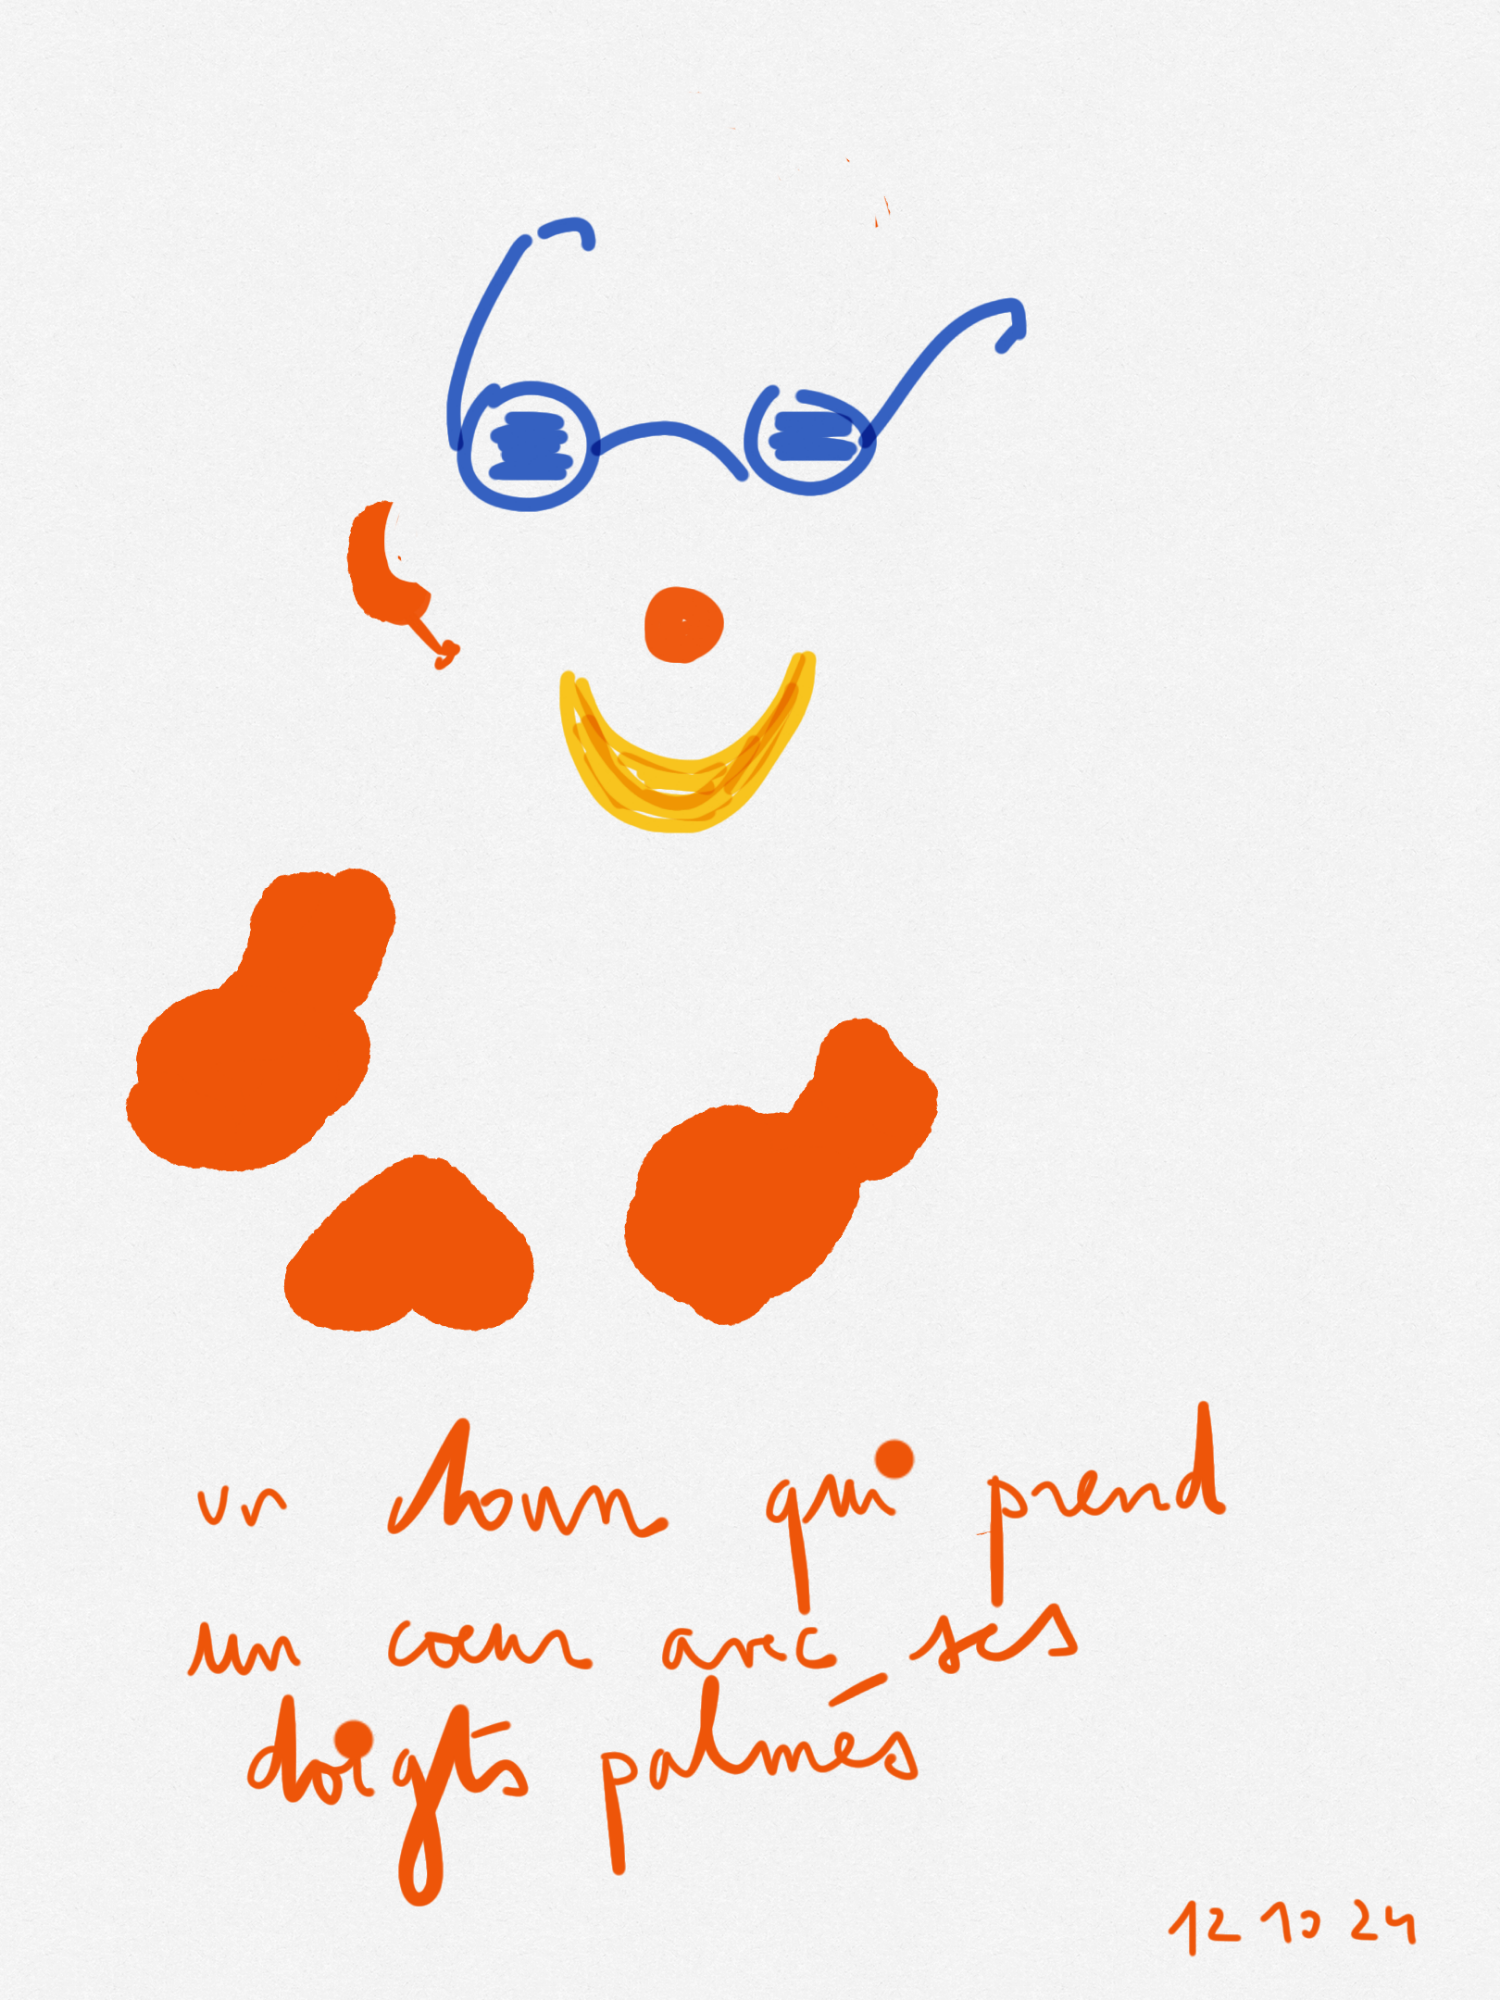 un clown qui prend
un cœur avec ses
doigts palmés
12 10 24